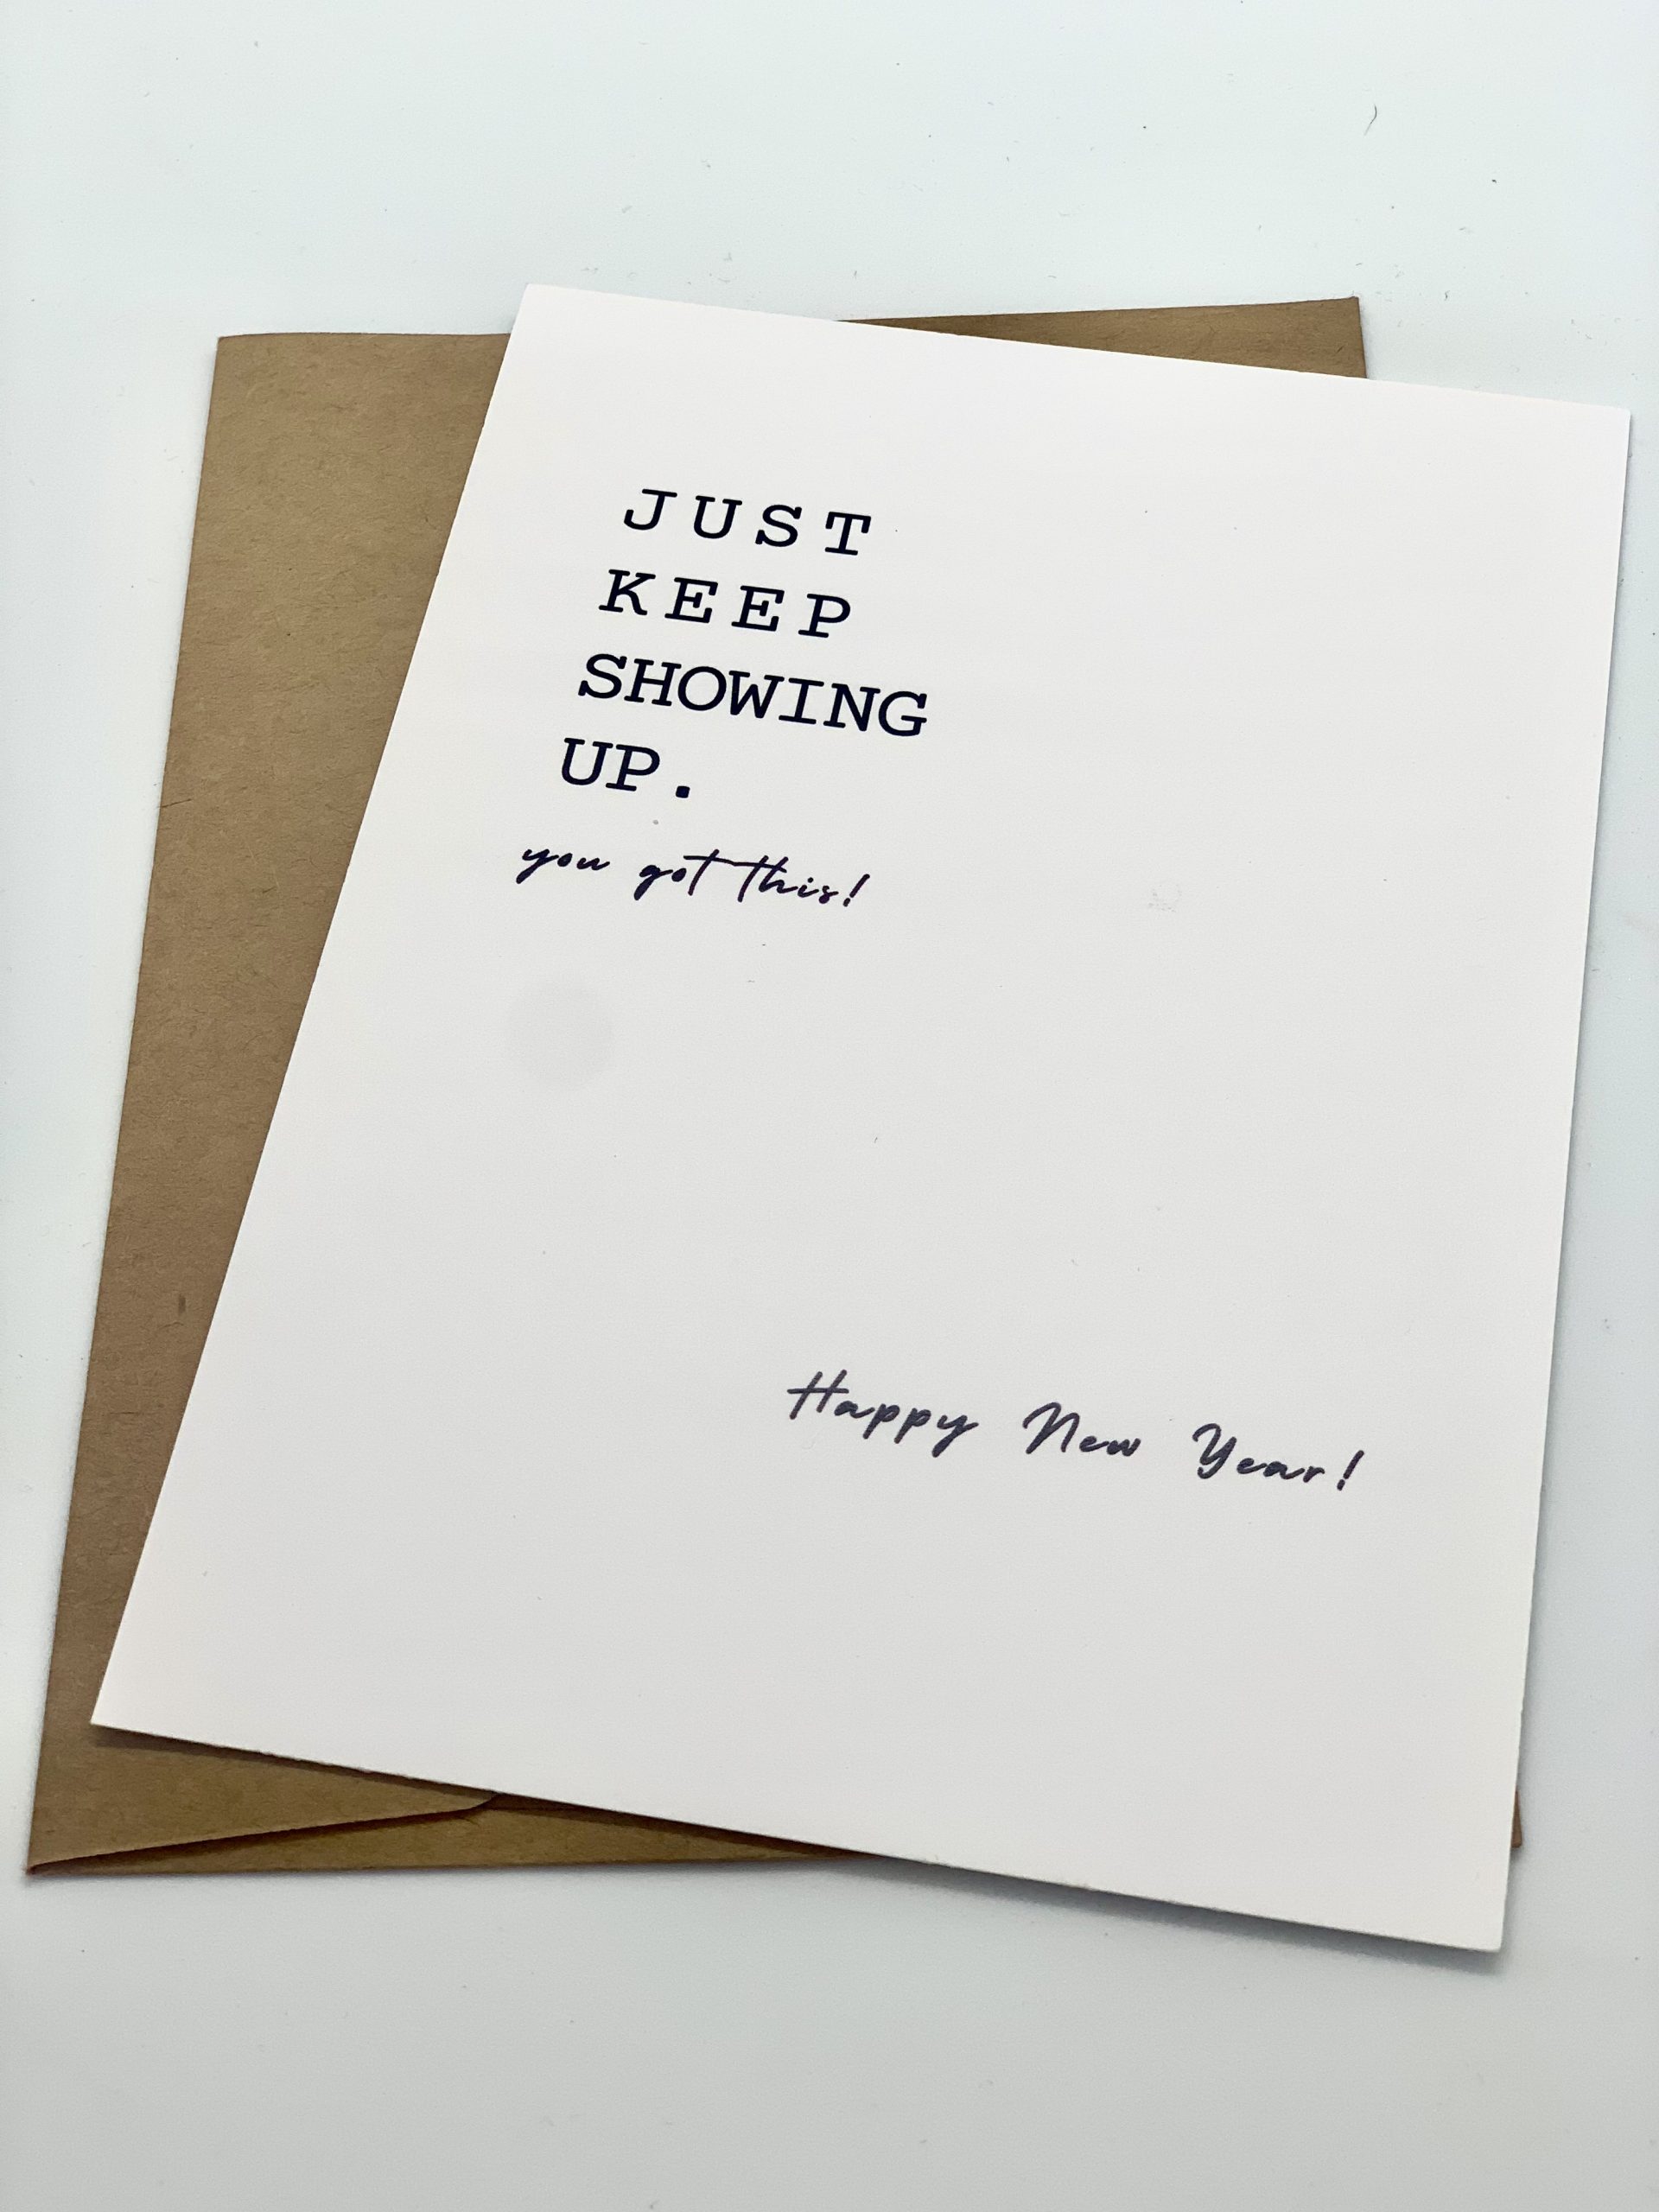 JUST
KEEP
SHOWING
UP.
you got this!
Happy New Year!